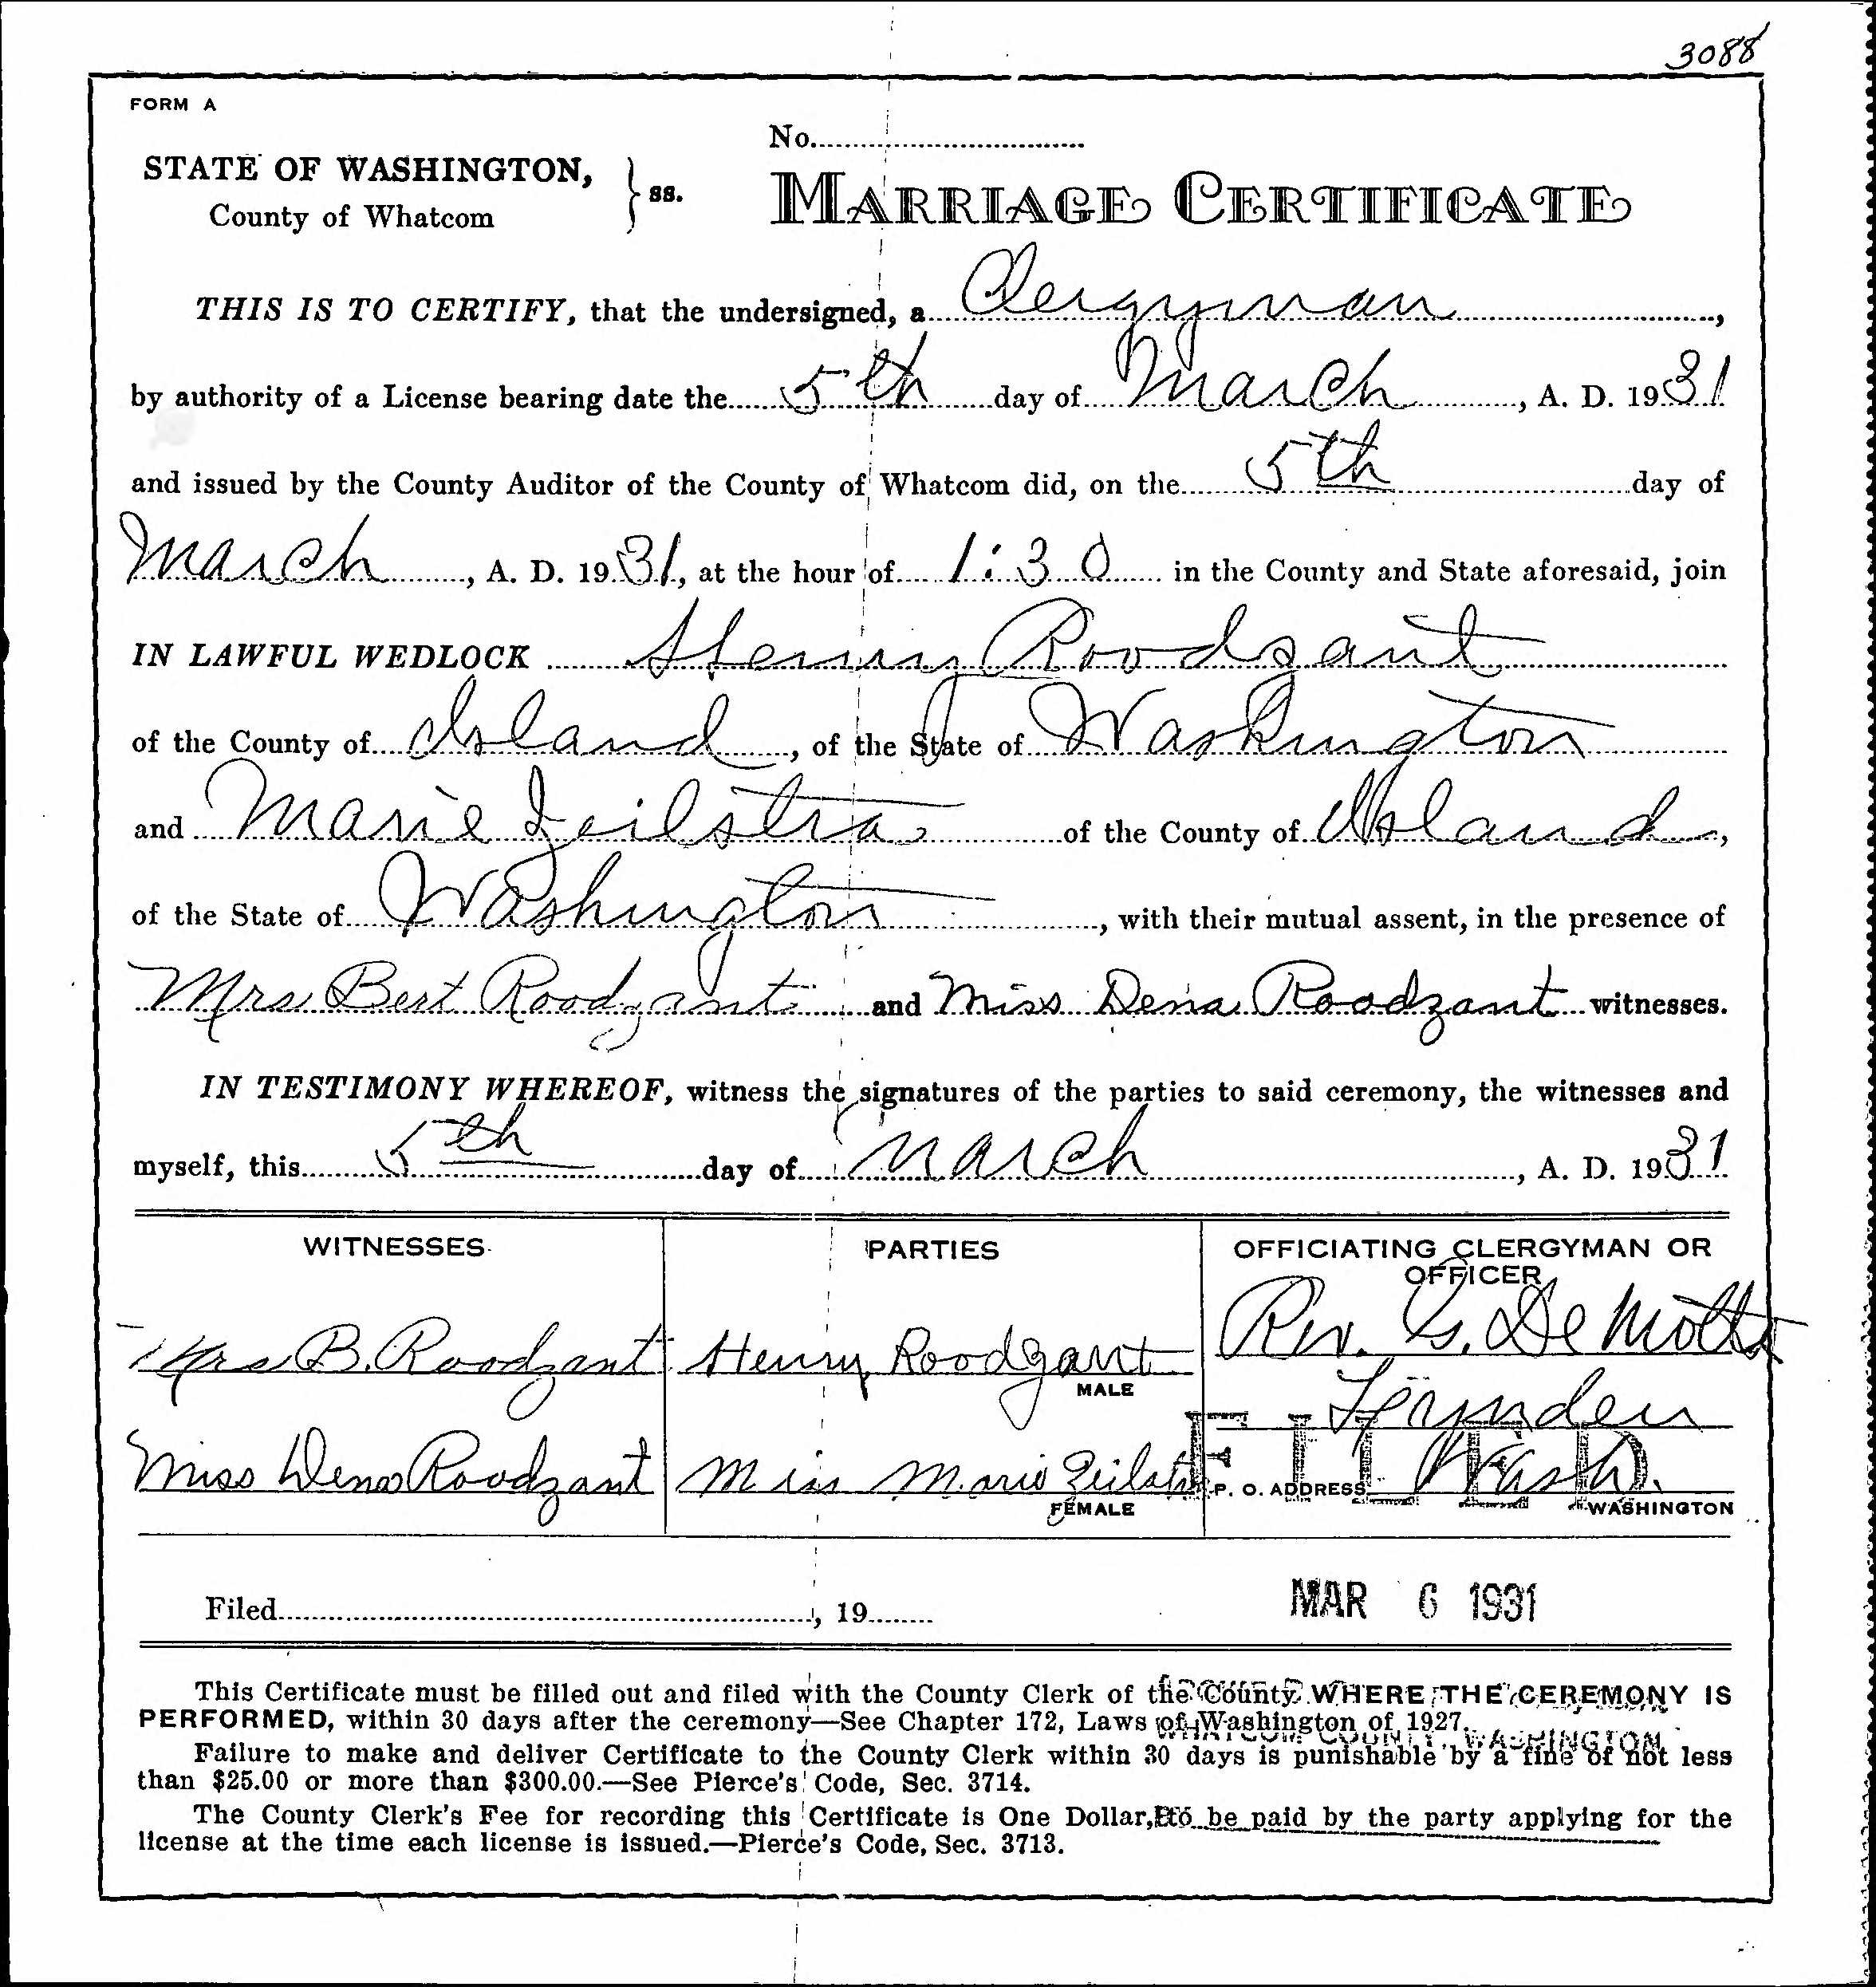 3088
FORM A
No.
STATE OF WASHINGTON, } ss.
County of Whatcom
MARRIAGE CERTIFICATE
THIS IS TO CERTIFY, that the undersigned, a Clergyman,
by authority of a License bearing date the 5th day of March, A. D. 1931
and issued by the County Auditor of the County of Whatcom did, on the 5th day of
March, A. D. 1931, at the hour of 1:30 in the County and State aforesaid, join
IN LAWFUL WEDLOCK Henry Roodzant
of the County of Island, of the State of Washington
and Marie Zeilstra of the County of Island,
of the State of Washington, with their mutual assent, in the presence of
Mrs Bert Roodzant and Miss Dena Roodzant witnesses.
IN TESTIMONY WHEREOF, witness the signatures of the parties to said ceremony, the witnesses and
myself, this 5th day of March, A. D. 1931
WITNESSES
PARTIES
OFFICIATING CLERGYMAN OR
OFFICER
Mrs B. Roodzant
Henry Roodzant
MALE
Rev. G. De Motts
Lynden
Miss Dena Roodzant
Miss Marie Zeilstra
FEMALE
FILED
P. O. ADDRESS Wash.
WASHINGTON
Filed, 19
MAR 6 1931
This Certificate must be filled out and filed with the County Clerk of the County WHERE THE CEREMONY IS
PERFORMED, within 30 days after the ceremony—See Chapter 172, Laws of Washington of 1927.
WHATCOM COUNTY, WASHINGTON
Failure to make and deliver Certificate to the County Clerk within 30 days is punishable by a fine of not less
than $25.00 or more than $300.00.—See Pierce's Code, Sec. 3714.
The County Clerk's Fee for recording this Certificate is One Dollar, to be paid by the party applying for the
license at the time each license is issued.—Pierce's Code, Sec. 3713.